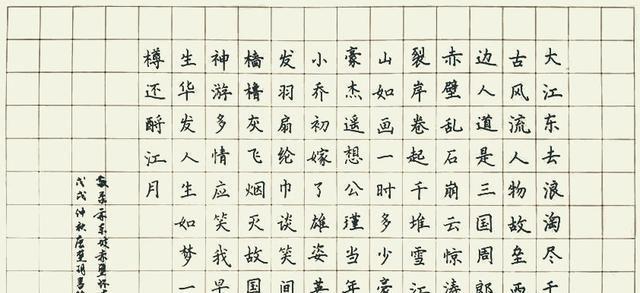 大江东去浪淘尽千
古风流人物故垒西
边人道是三国周郎
赤壁乱石崩云惊涛
裂岸卷起千堆雪江
山如画一时多少豪
豪杰遥想公瑾当年
小乔初嫁了雄姿英
发羽扇纶巾谈笑间
樯橹灰飞烟灭故国
神游多情应笑我早
生华发人生如梦一
樽还酹江月
苏东坡赤壁怀
戊戌仲秋